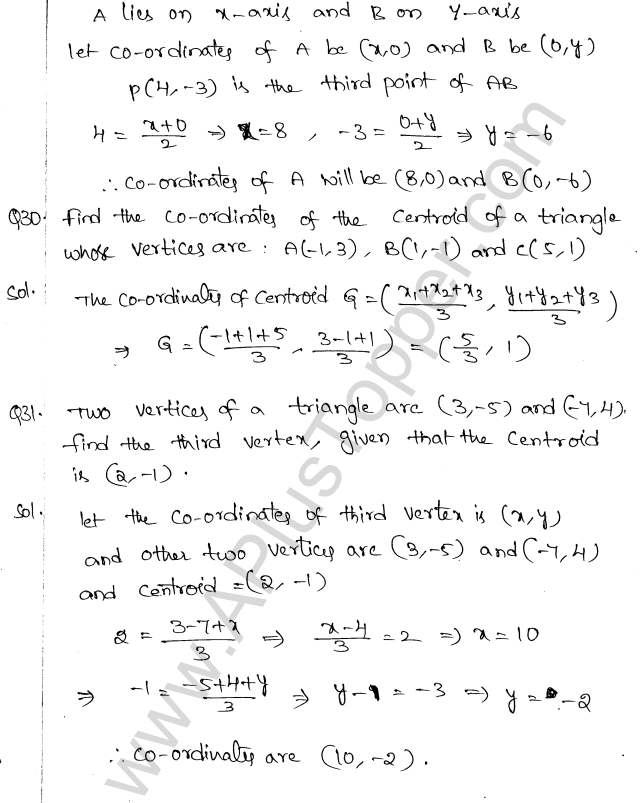 A lies on x-axis and B on y-axis
let co-ordinates of A be (x,0) and B be (0,y)
P(4,-3) is the third point of AB
4 = (x+0)/2 ⇒ x=8 , -3 = (0+y)/2 ⇒ y = -6
∴ co-ordinates of A will be (8,0) and B(0,-6)
Q30. find the co-ordinates of the centroid of a triangle
whose vertices are : A(-1,3), B(1,-1) and C(5,1)
Sol. The co-ordinates of centroid G = ((x₁+x₂+x₃)/3, (y₁+y₂+y₃)/3)
⇒ G = ((-1+1+5)/3, (3-1+1)/3) = (5/3, 1)
Q31. Two vertices of a triangle are (3,-5) and (-7,4).
find the third vertex, given that the centroid
is (2,-1).
Sol. let the co-ordinates of third vertex is (x,y)
and other two vertices are (3,-5) and (-7,4)
and centroid = (2,-1)
2 = (3-7+x)/3 ⇒ (x-4)/3 = 2 ⇒ x = 10
⇒ -1 = (-5+4+y)/3 ⇒ y-1 = -3 ⇒ y = -2
∴ co-ordinates are (10,-2).
www.APlusTopper.com